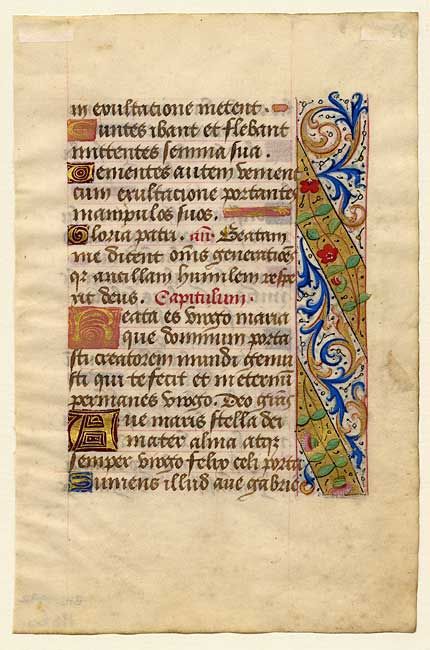 in exultacione metent.
Euntes ibant et flebant
mittentes semina sua.
Venientes autem venient
cum exultacione portantes
manipulos suos.
Gloria patri. añ. Beatam
me dicent om̄s generatiōes
qr ancillam humilem respe
xit deus. Capitulum.
Beata es virgo maria
que dominum porta
sti creatorem mundi genui
sti qui te fecit et in eternū
permanes virgo. Deo grās
Aue maris stella dei
mater alma atqꝫ
semper virgo felix celi porta
Sumens illud aue gabrie